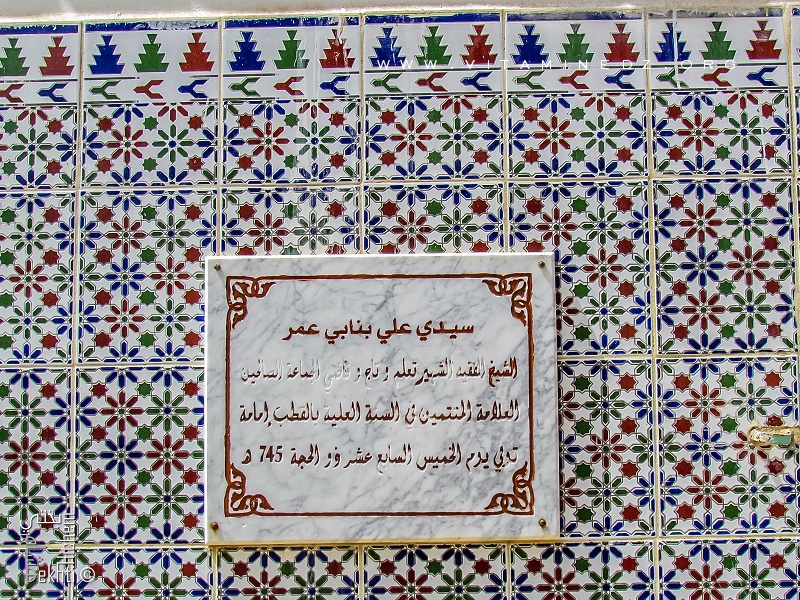 WWW.VITAMINEDZ.ORG
سيدي علي بنابي عمر
الشيخ الفقيه الشهير تعلم و تاج و قاضي الجماعة للصالحين
العلامة المنتمين في السنة العلية بالقطب إمامة
توفي يوم الخميس السابع عشر ذو الحجة 745 هـ